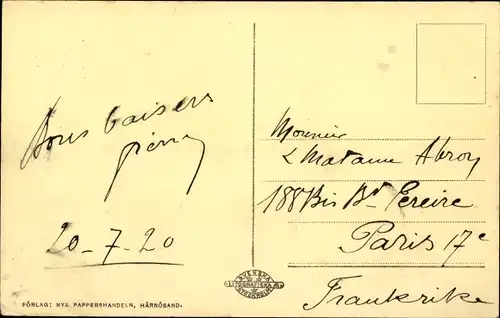 Bons baisers
pierre
20-7-20
FÖRLAG: NYA PAPPERSHANDELN, HÄRNÖSAND.
SVENSKA
LITOGRAFISKA A.B.
STOCKHOLM
Monsieur
& Madame Abroy
188 Bis Bd Pereire
Paris 17e
Frankrike